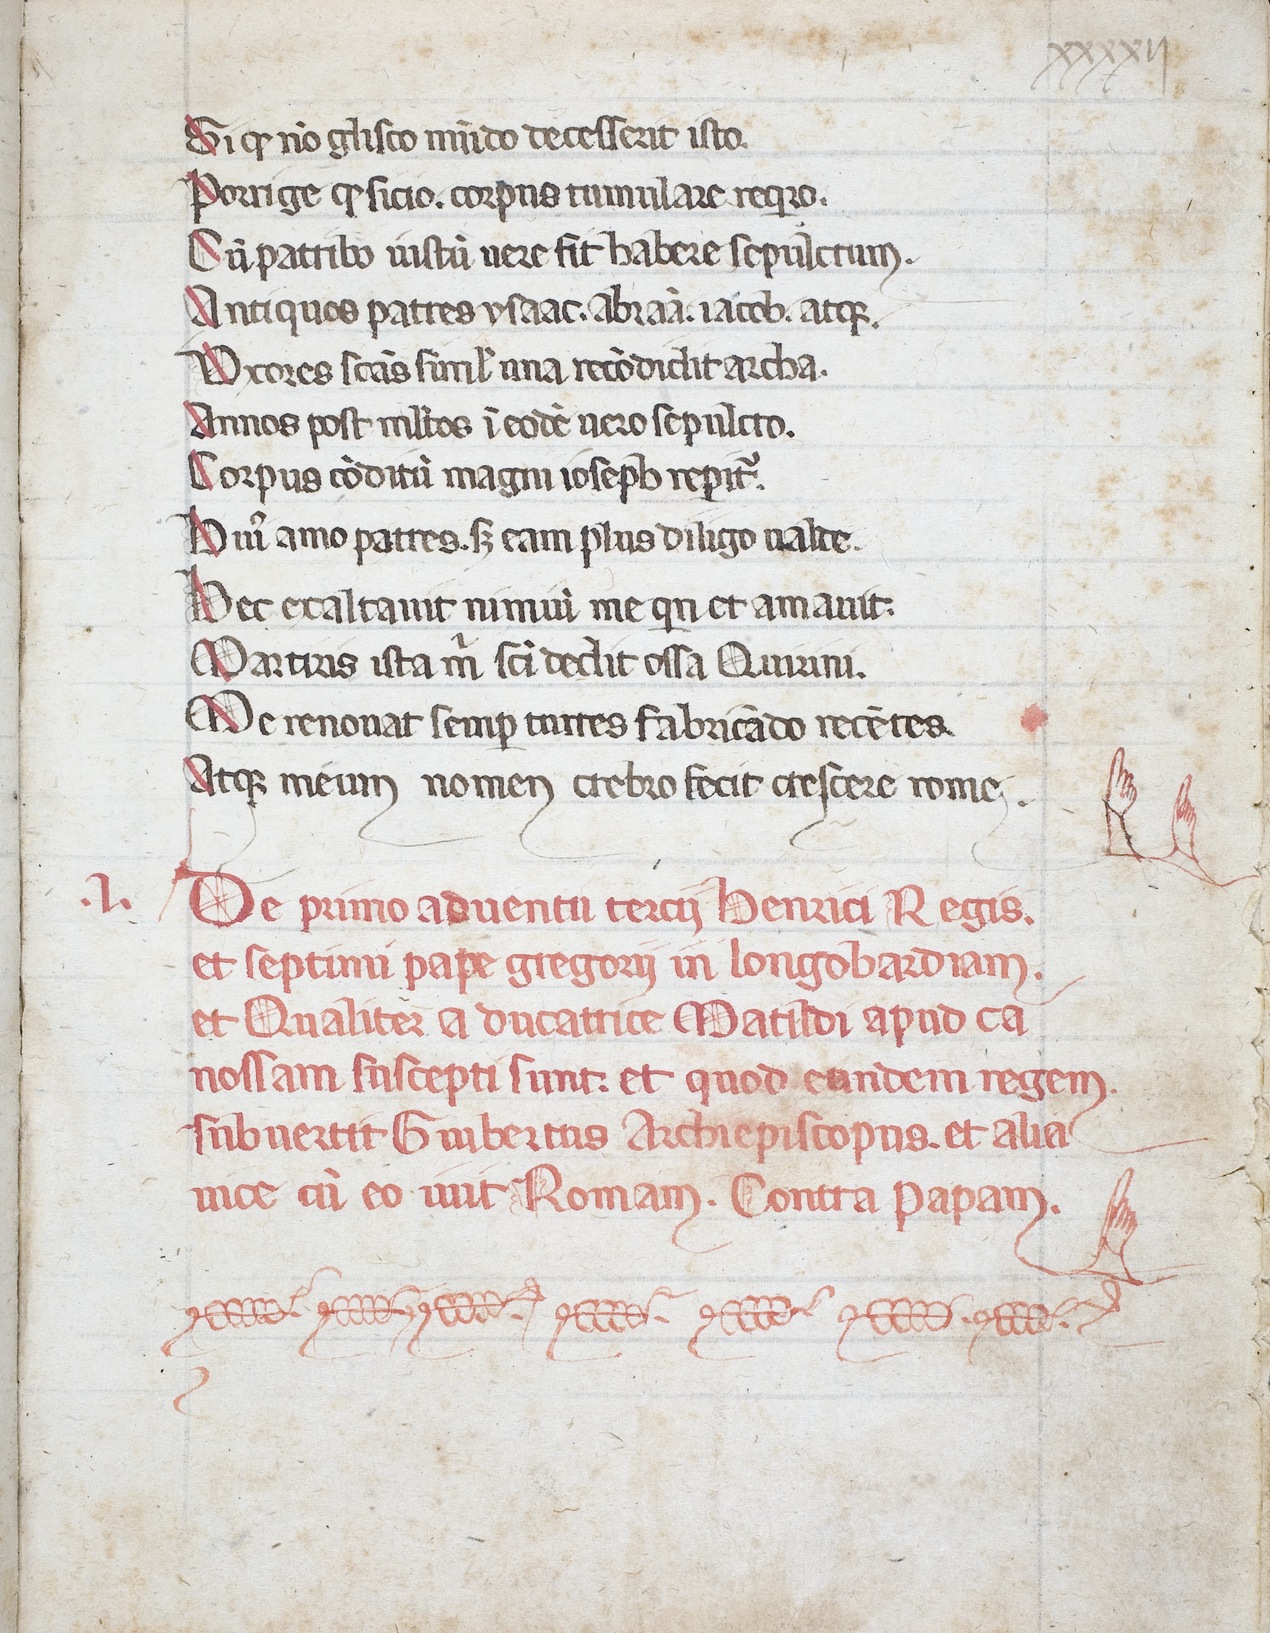 xxxxij
Si qꝫ nō glisco mūdo decesserit isto.
Porrige qꝫ sicio. corpus tumulare reqiro.
Cū patribꝫ iustū uere fit habere sepulcrum.
Antiquos patres ysaac. abraā. iacob. atqꝫ.
Vxores scās simil' una recōdidit archa.
Annos post ml'tos ī eodē uero sepulcro.
Corpus cōditū magni ioseph repit'.
Hui' amo patres. sꝫ eam plus diligo ualde.
Hec exaltauit nimiū me qn et amauit.
Martiris ista m sci dedit ossa Quirini.
Me renouat semp turres fabricādo recētes.
Atqꝫ meum nomen crebro fecit crescere rome.
.I. De primo aduentu tercij Henrici Regis.
et septimi pape gregorij in longobardiam.
et Qualiter a ducatrice Matildi apud ca
nossam suscepti sunt. et quod eundem regem.
subuertit Guibertus Archiepiscopus. et alia
uice cū eo iuit Romam. Contra Papam.